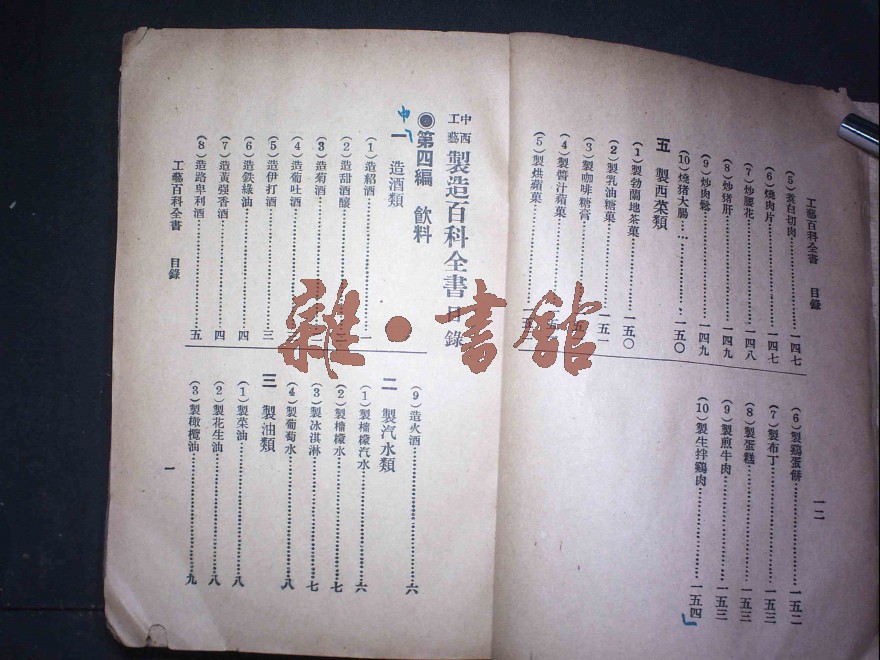 工藝百科全書 目錄
(5)煮白切肉……一四七
(6)燒肉片……一四七
(7)炒腰花……一四八
(8)炒猪肝……一四九
(9)炒肉鬆……一四九
(10)燒猪大腸……一五〇
五 製西菜類
(1)製勃蘭地茶菓……一五〇
(2)製乳油糖菓……一五一
(3)製咖啡糖膏
(4)製醬汁蘋菓
(5)製烘蘋菓
(6)製鷄蛋餅……一五二
(7)製布丁……一五三
(8)製蛋糕……一五三
(9)製煎牛肉……一五三
(10)製生拌鷄肉……一五四
一二
中西工藝 製造百科全書 目錄
●第四編 飲料
中
一 造酒類
(1)造紹酒……一
(2)造甜酒釀
(3)造菊酒
(4)造葡吐酒
(5)造伊打酒……三
(6)造鉄綠油……四
(7)造黃強香酒……四
(8)造路卑利酒……五
(9)造火酒……六
二 製汽水類
(1)製檸檬汽水……六
(2)製檸檬水……七
(3)製冰淇淋……七
(4)製葡萄水……八
三 製油類
(1)製菜油……八
(2)製花生油……八
(3)製橄欖油……九
工藝百科全書 目錄
一
雜·書館